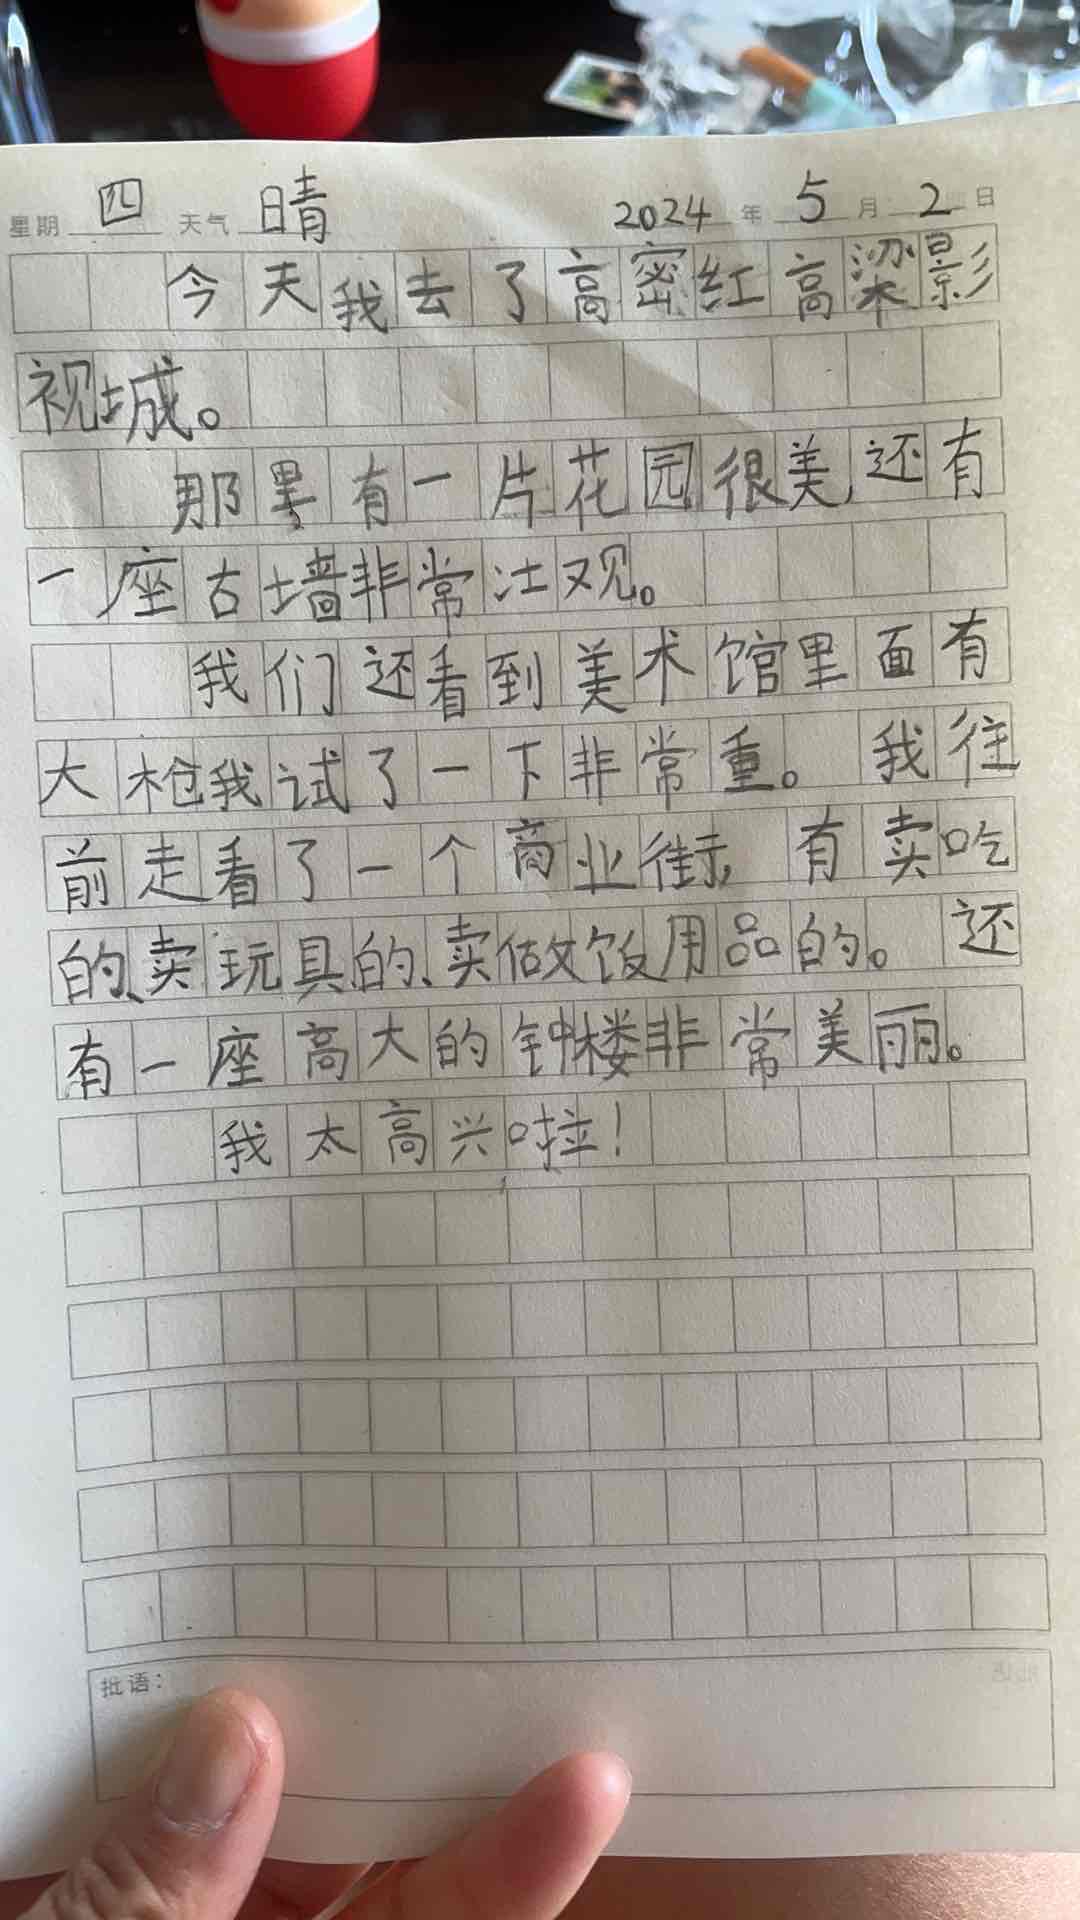 星期 四 天气 晴 2024 年 5 月 2 日
今天我去了高密红高梁影
视城。
那里有一片花园很美,还有
一座古墙非常江观。
我们还看到美术馆里面有
大枪我试了一下非常重。我往
前走看了一个商业街,有卖吃
的、卖玩具的、卖做饭用品的。还
有一座高大的钟楼非常美丽。
我太高兴啦!
批语: